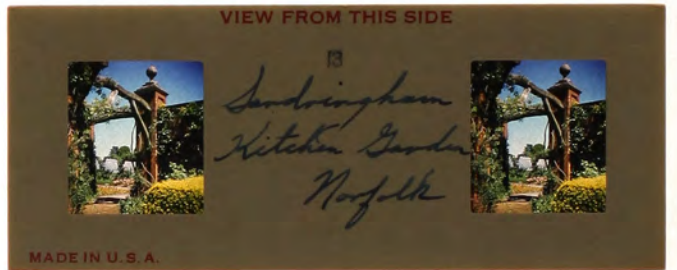 VIEW FROM THIS SIDE
13
Sandringham
Kitchen Garden
Norfolk
MADE IN U.S.A.